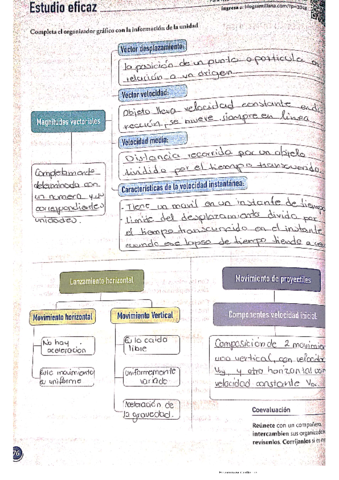 Estudio eficaz
Ingresa a:
Completa el organizador gráfico con la información de la unidad
Vector desplazamiento:
la posición de un punto o particula en
relación a un origen
Vector velocidad:
Objeto lleva velocidad constante en di
rección, se mueve siempre en linea
Magnitudes vectoriales
Velocidad media:
Distancia recorrida por un objeto
dividido por el tiempo transcurrido
Completamente
determinada con
un numero y sus
correspondientes
unidades.
Características de la velocidad instantánea:
- Tiene un movil en un instante de tiempo
- limite del desplazamiento dividio por
el tiempo transcurrido en el instante
cuando ese lapso de tiempo tiende a
Lanzamiento horizontal
Movimiento de proyectiles
Movimiento horizontal
Movimiento Vertical
Componentes velocidad inicial
No hay
aceleración
Es la caida
libre
Composición de 2 movimie
una vertical, con velocidad
y otro horizontal con
velocidad constante
movimiento
es uniforme
Uniformemente
variado
Aceleración de
la gravedad.
Coevaluación
Reúnete con un compañero,
intercambien sus organizado
revísenlos. Corríjanlos si es
76